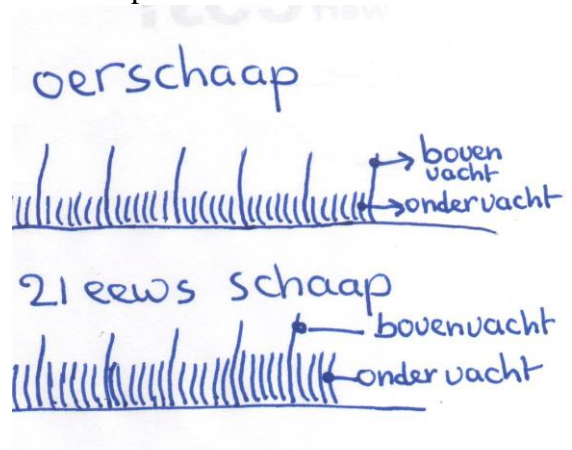 oerschaap
boven
vacht
ondervacht
21 eeuws schaap
bovenvacht
ondervacht